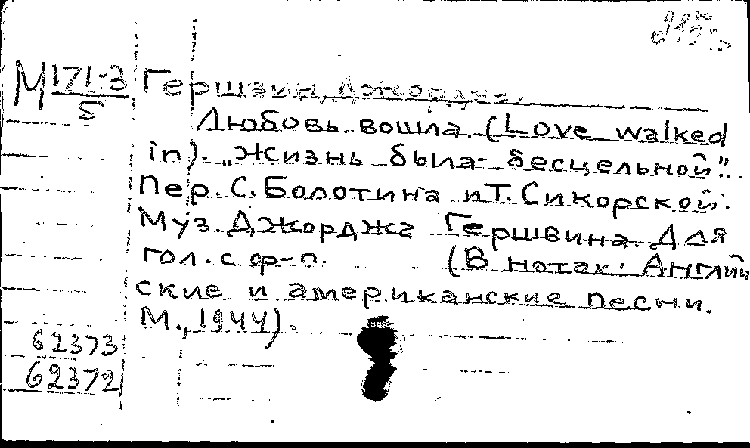 М 171-3 Гершвин, Джордж.
5
Любовь вошла (Love walked
in). „Жизнь была бесцельной"..
Пер. С. Болотина и Т. Сикорской.
Муз. Джорджа Гершвина. Для
гол. с ф-п. (В нотах: Англий
ские и американские песни.
М., 1944).
62373
62372